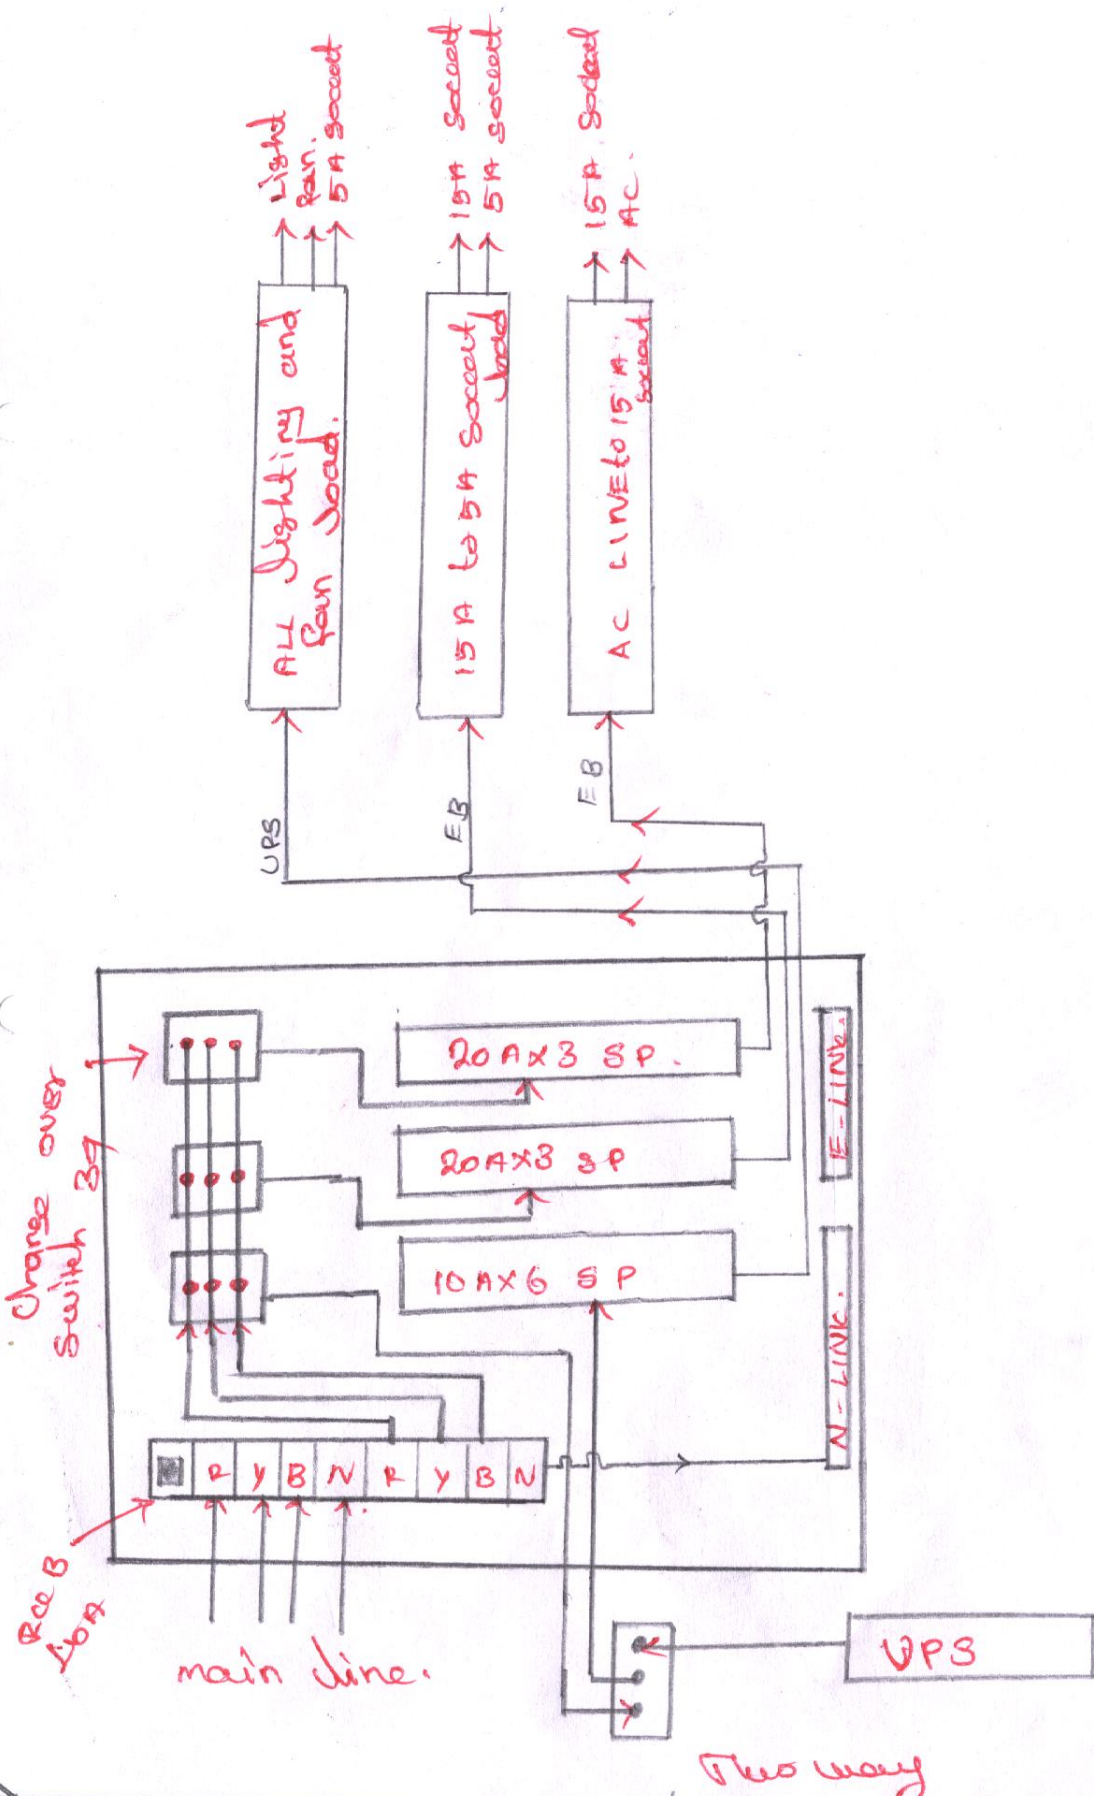 Light
fan.
5A soceet
15A soceet
5A soceet
15A. Socket
AC.
ALL lighting and
fan load.
15A to 5A soceet
load
AC LINE to 15A.
soceet
UPS
EB
EB
Change over
switch
20A x 3 SP.
20A x 3 SP
10A x 6 SP
E-LINK.
N-LINK.
R Y B N R Y B N
main line.
UPS
Two way